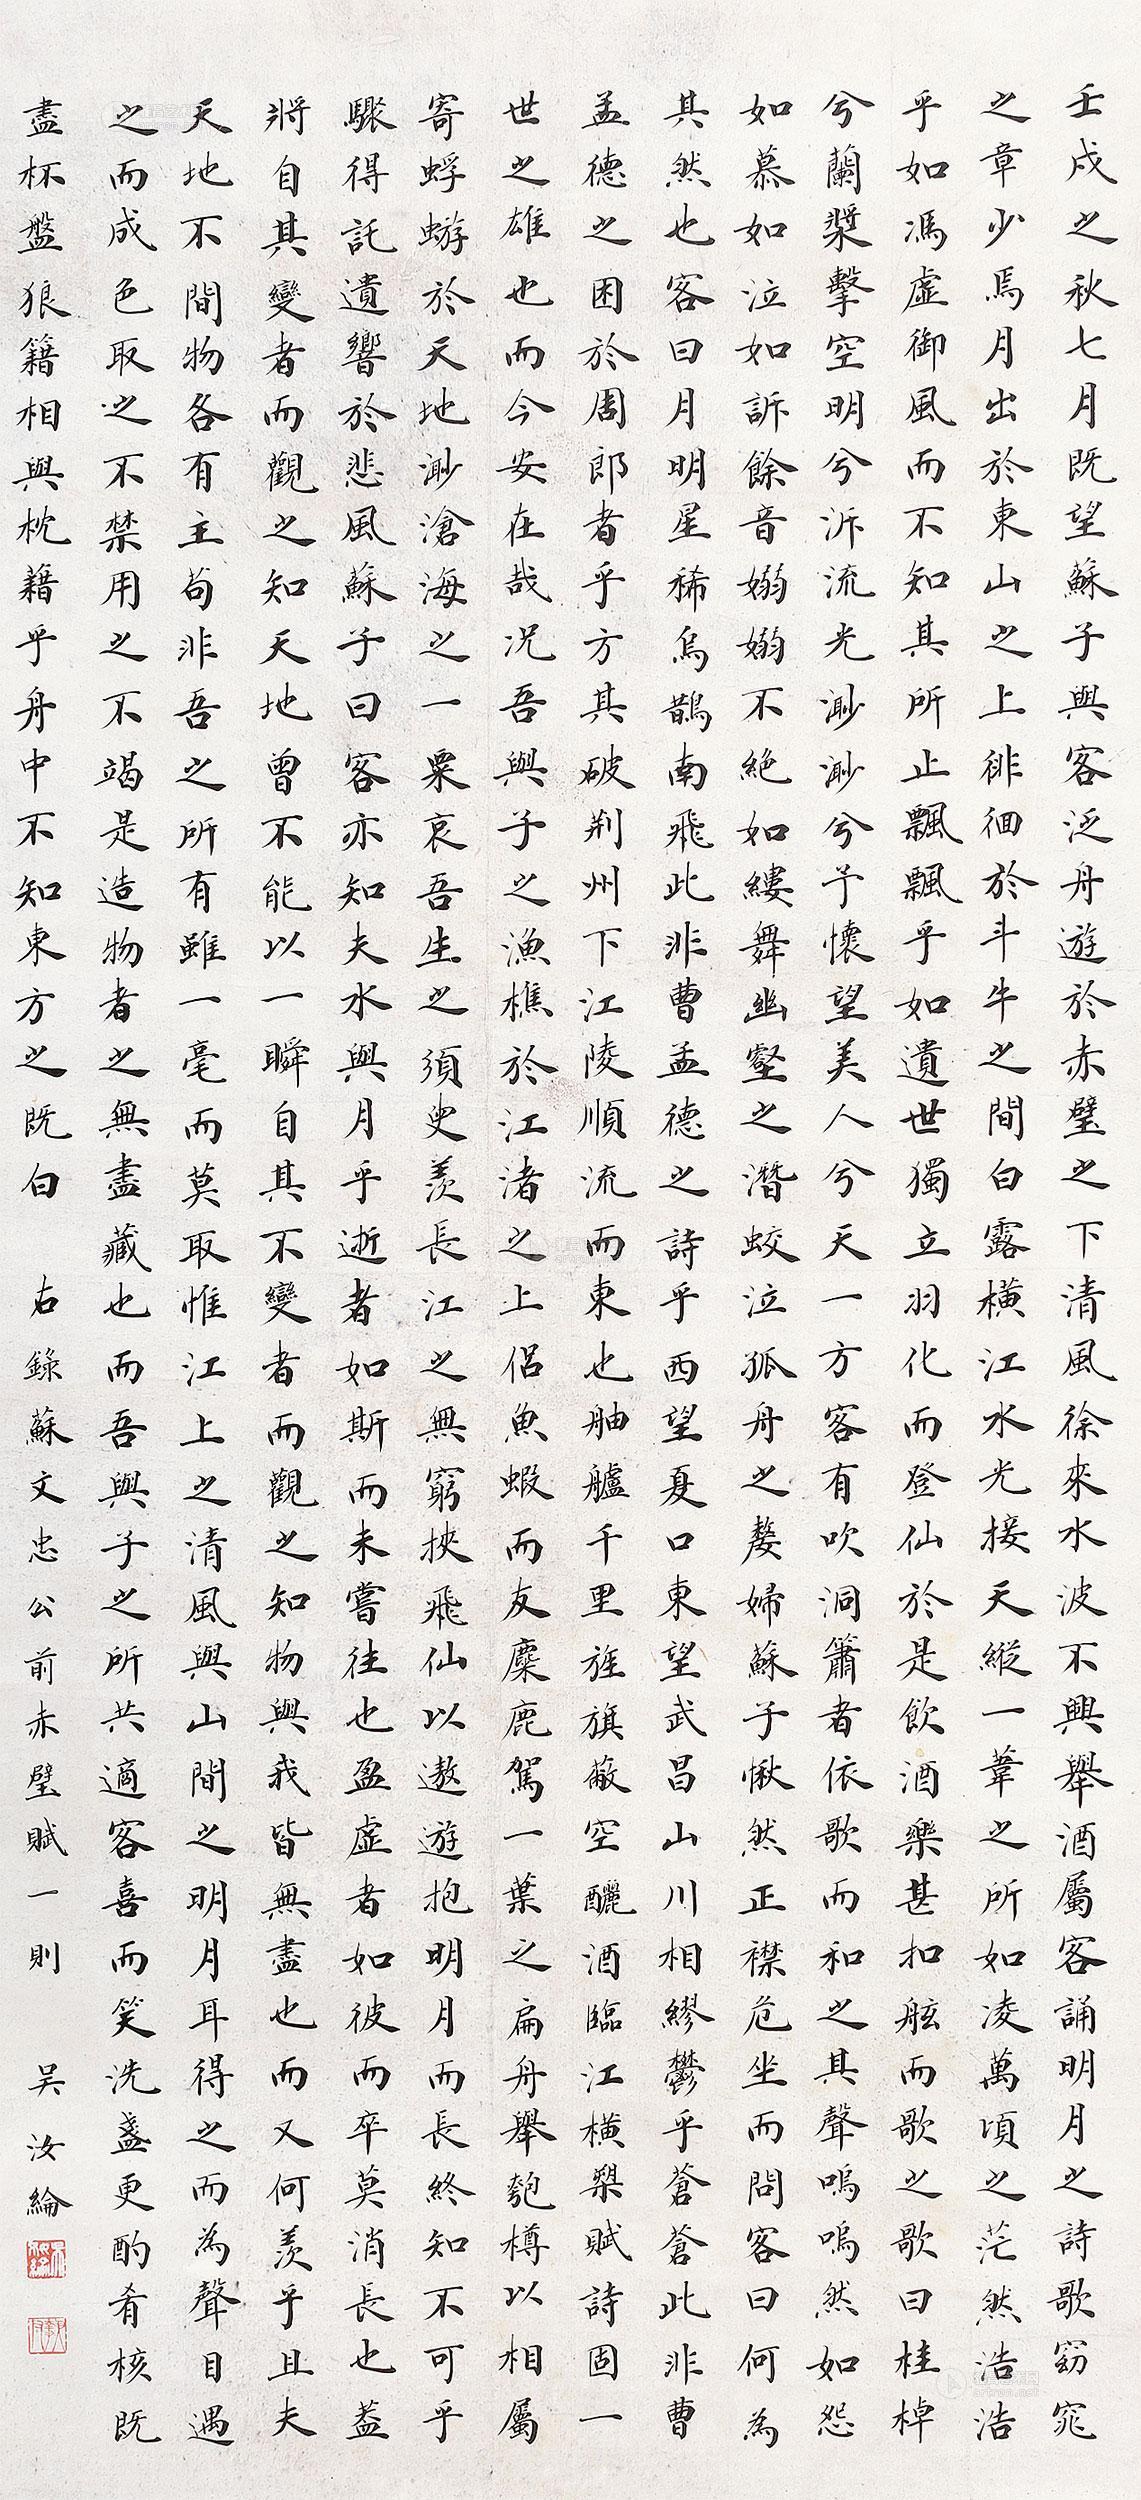 壬戌之秋七月既望蘇子與客泛舟遊於赤壁之下清風徐來水波不興舉酒屬客誦明月之詩歌窈窕
之章少焉月出於東山之上徘徊於斗牛之間白露橫江水光接天縱一葦之所如凌萬頃之茫然浩浩
乎如馮虛御風而不知其所止飄飄乎如遺世獨立羽化而登仙於是飲酒樂甚扣舷而歌之歌曰桂棹
兮蘭槳擊空明兮泝流光渺渺兮予懷望美人兮天一方客有吹洞簫者依歌而和之其聲嗚嗚然如怨
如慕如泣如訴餘音嫋嫋不絕如縷舞幽壑之潛蛟泣孤舟之嫠婦蘇子愀然正襟危坐而問客曰何為
其然也客曰月明星稀烏鵲南飛此非曹孟德之詩乎西望夏口東望武昌山川相繆鬱乎蒼蒼此非曹
孟德之困於周郎者乎方其破荊州下江陵順流而東也舳艫千里旌旗蔽空釃酒臨江橫槊賦詩固一
世之雄也而今安在哉況吾與子之漁樵於江渚之上侶魚蝦而友麋鹿駕一葉之扁舟舉匏樽以相屬
寄蜉蝣於天地渺滄海之一粟哀吾生之須臾羨長江之無窮挾飛仙以遨遊抱明月而長終知不可乎
驟得託遺響於悲風蘇子曰客亦知夫水與月乎逝者如斯而未嘗往也盈虛者如彼而卒莫消長也蓋
將自其變者而觀之知天地曾不能以一瞬自其不變者而觀之知物與我皆無盡也而又何羨乎且夫
天地不間物各有主苟非吾之所有雖一毫而莫取惟江上之清風與山間之明月耳得之而為聲目遇
之而成色取之不禁用之不竭是造物者之無盡藏也而吾與子之所共適客喜而笑洗盞更酌肴核既
盡杯盤狼籍相與枕藉乎舟中不知東方之既白 右錄蘇文忠公前赤壁賦一則 吳汝綸